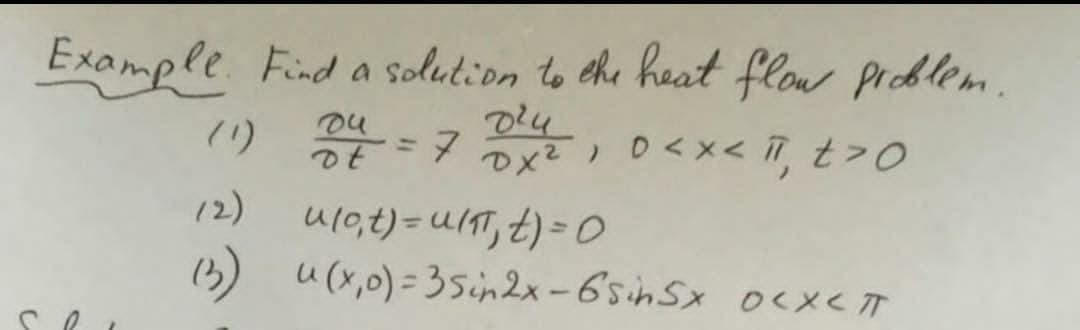 Example. Find a solution to the heat flow problem.
(1) ∂u/∂t = 7 ∂²u/∂x² , 0 < x < π, t > 0
(2) u(0,t) = u(π,t) = 0
(3) u(x,0) = 3 sin2x − 6 sin5x 0 < x < π